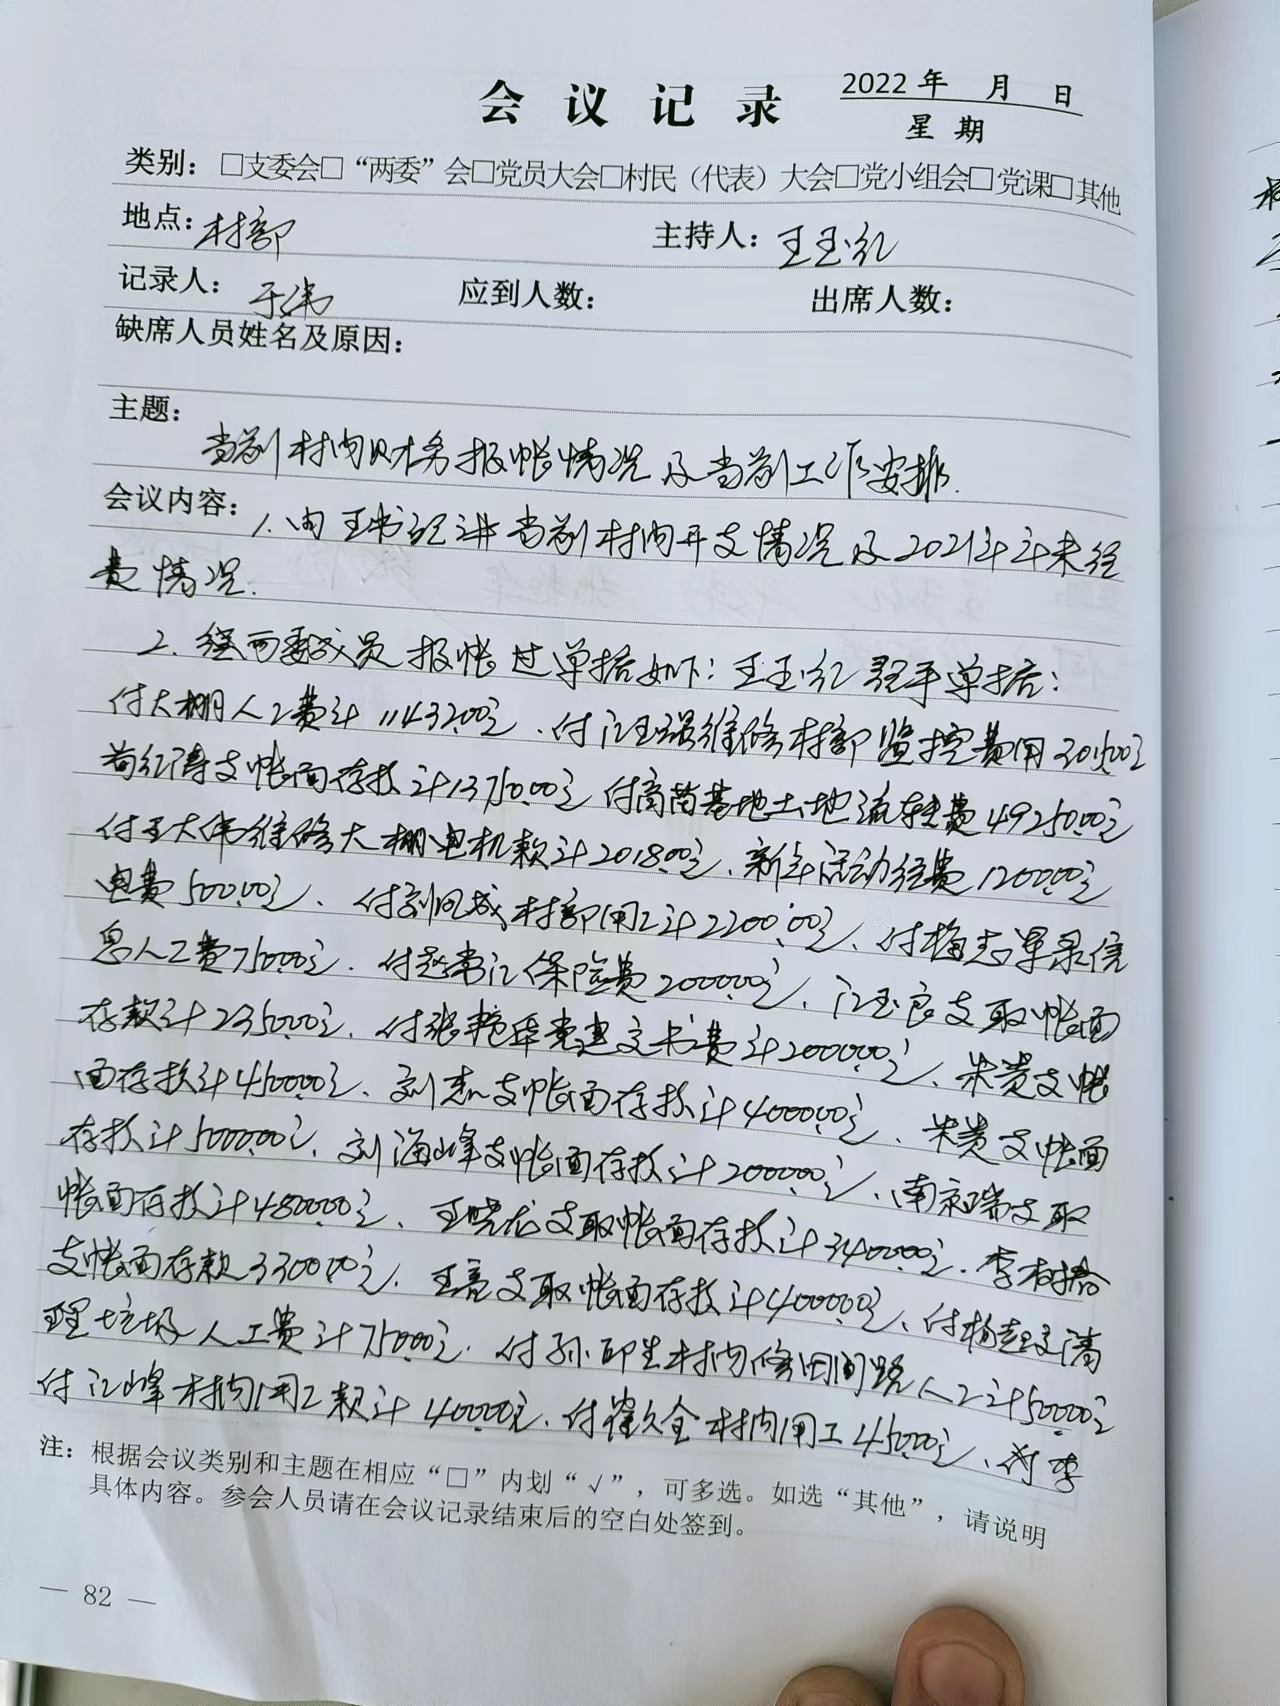 会议记录 2022年 月 日
星期
类别：□支委会□“两委”会□党员大会□村民（代表）大会□党小组会□党课□其他
地点：村部 主持人：王玉红
记录人：于伟 应到人数： 出席人数：
缺席人员姓名及原因：
主题：
当前村内财务报帐情况及当前工作安排.
会议内容：1.由王书记讲当前村内开支情况及2021年年末经
费情况.
2.经两委成员报帐过单据如下：王玉红经手单据：
付大棚人工费计11432.00元、付江玉强维修村部监控费用
支帐面存款计13750.00元 付商苗基地土地流转费49250.00元
付王大伟维修大棚电机款计2018.00元、新年活动经费1200.00元
电费500.00元、付刘凤成村部用工计2200.00元、付梅志军录信
息人工费750.00元、付赵常江保险费2000.00元、江玉良支取帐面
存款计2350.00元、付张艳华党建文书费计2000.00元、朱贵支帐
面存款计4500.00元、刘杰支帐面存款计4000.00元、朱贵支帐面
存款计5000.00元、刘海峰支帐面存款计2000.00元、南京瑞支取
帐面存款计4800.00元、王晓龙支取帐面存款计3400.00元、李树
支帐面存款3300.00元、王亮支取帐面存款计4000.00元、付杨 清
理垃圾人工费计750.00元、付孙印生村内修田间路人工计500.00元
付江峰村内用工款计400.00元、付崔久全村内用工450.00元、付李
注：根据会议类别和主题在相应“□”内划“√”，可多选。如选“其他”，请说明
具体内容。参会人员请在会议记录结束后的空白处签到。
— 82 —